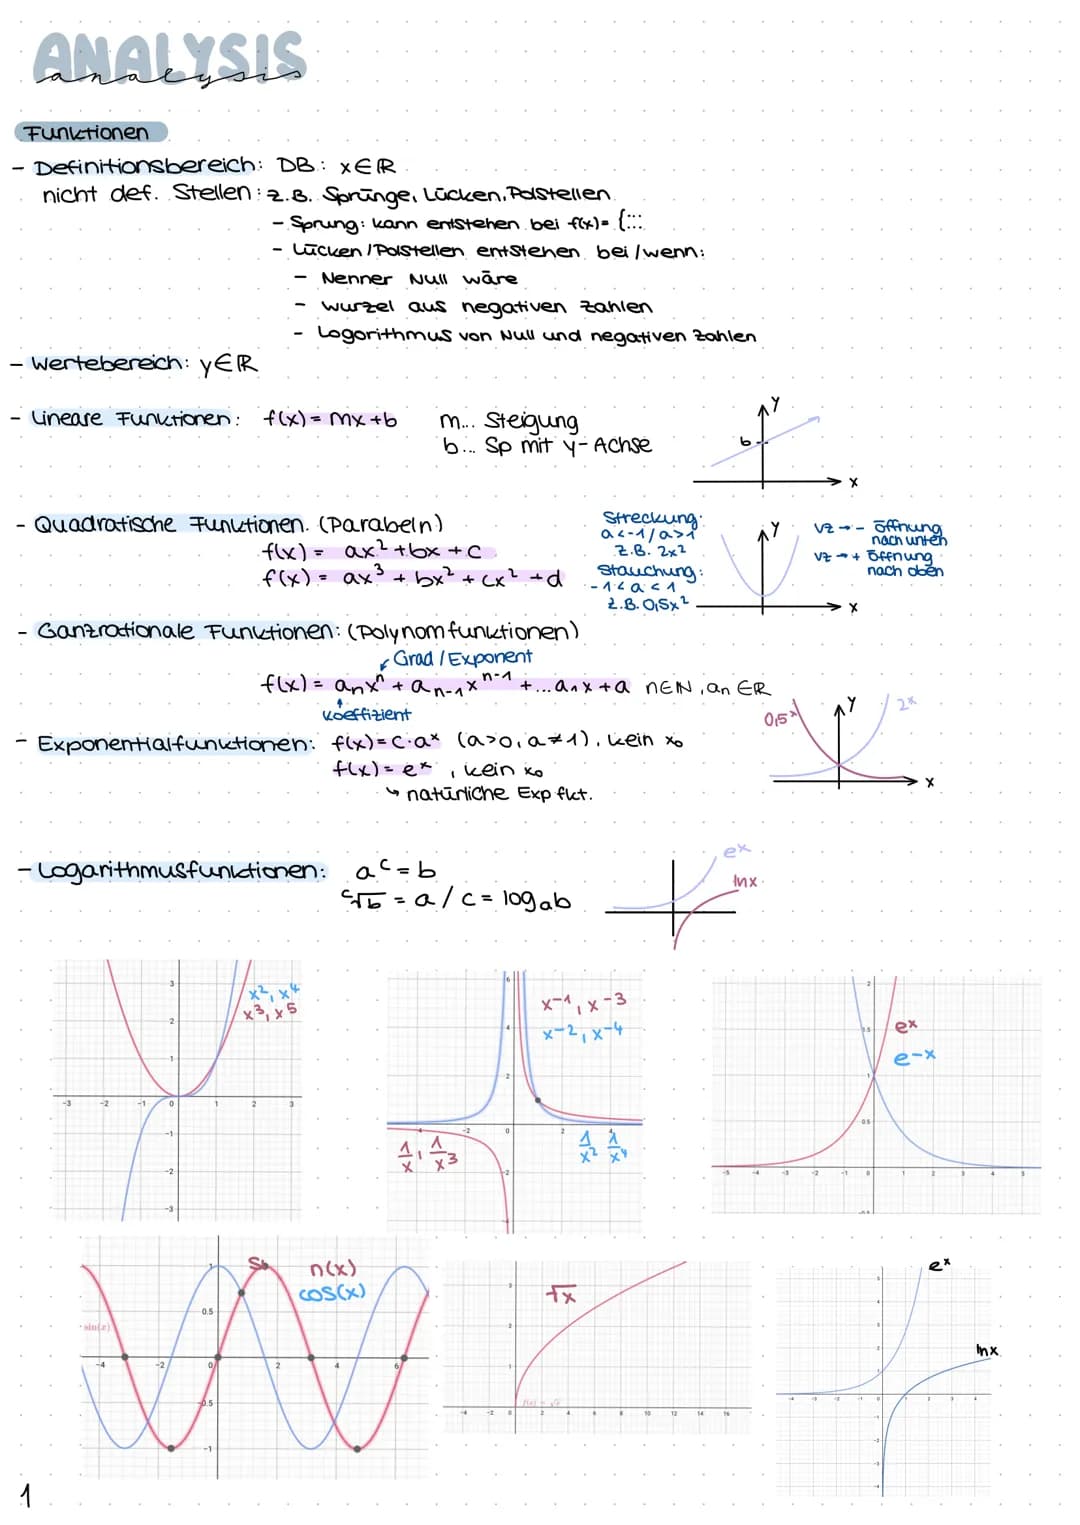 ANALYSIS
analysis
Funktionen
- Definitionsbereich: DB: x∈ℝ
nicht def. Stellen: z.B. Sprünge, Lücken, Polstellen
- Sprung: kann entstehen bei f(x)= {:::
- Lücken/Polstellen entstehen bei/wenn:
- Nenner Null wäre
- wurzel aus negativen zahlen
- Logorithmus von Null und negativen Zahlen
- Wertebereich: y∈ℝ
- Lineare Funktionen: f(x) = mx+b m... Steigung
b... Sp mit y-Achse
y
b
x
- Quadratische Funktionen. (Parabeln)
f(x) = ax² + bx + c
f(x) = ax³ + bx² + cx² + d
Streckung:
a<-1/a>1
z.B. 2x²
Stauchung:
-1<a<1
z.B. 0,5x²
y
x
VZ → - Öffnung
nach unten
VZ → + Öffnung
nach oben
- Ganzrationale Funktionen: (Polynomfunktionen)
Grad/Exponent
f(x) = aₙxⁿ + aₙ₋₁xⁿ⁻¹ + ... a₁x + a n∈ℕ, an∈ℝ
Koeffizient
- Exponentialfunktionen: f(x) = c·aˣ (a>0, a≠1), kein x₀
f(x) = eˣ, kein x₀
↳ natürliche Exp fkt.
0,5ˣ
y
2ˣ
x
- Logarithmusfunktionen: aᶜ = b
ᶜ√b = a / c = logₐb
eˣ
lnx
x², x⁴
x³, x⁵
3
2
1
-3 -2 -1 0 1 2 3
-1
-2
-3
x⁻¹, x⁻³
x⁻², x⁻⁴
6
4
2
-4 -2 0 2 4
-2
-4
1/x, 1/x³
1/x² 1/x⁴
eˣ
e⁻ˣ
2
1.5
1
0.5
-5 -4 -3 -2 -1 0 1 2 3 4 5
-0.5
Si n(x)
cos(x)
sin(x)
1
0.5
-4 -2 0 2 4 6
-0.5
-1
√x
3
2
1
-4 -2 0 2 4 6 8 10 12 14 16
f(x) = √x
eˣ
lnx
5
4
3
2
1
-4 -3 -2 -1 0 1 2 3 4
-1
-2
-3
-4
1